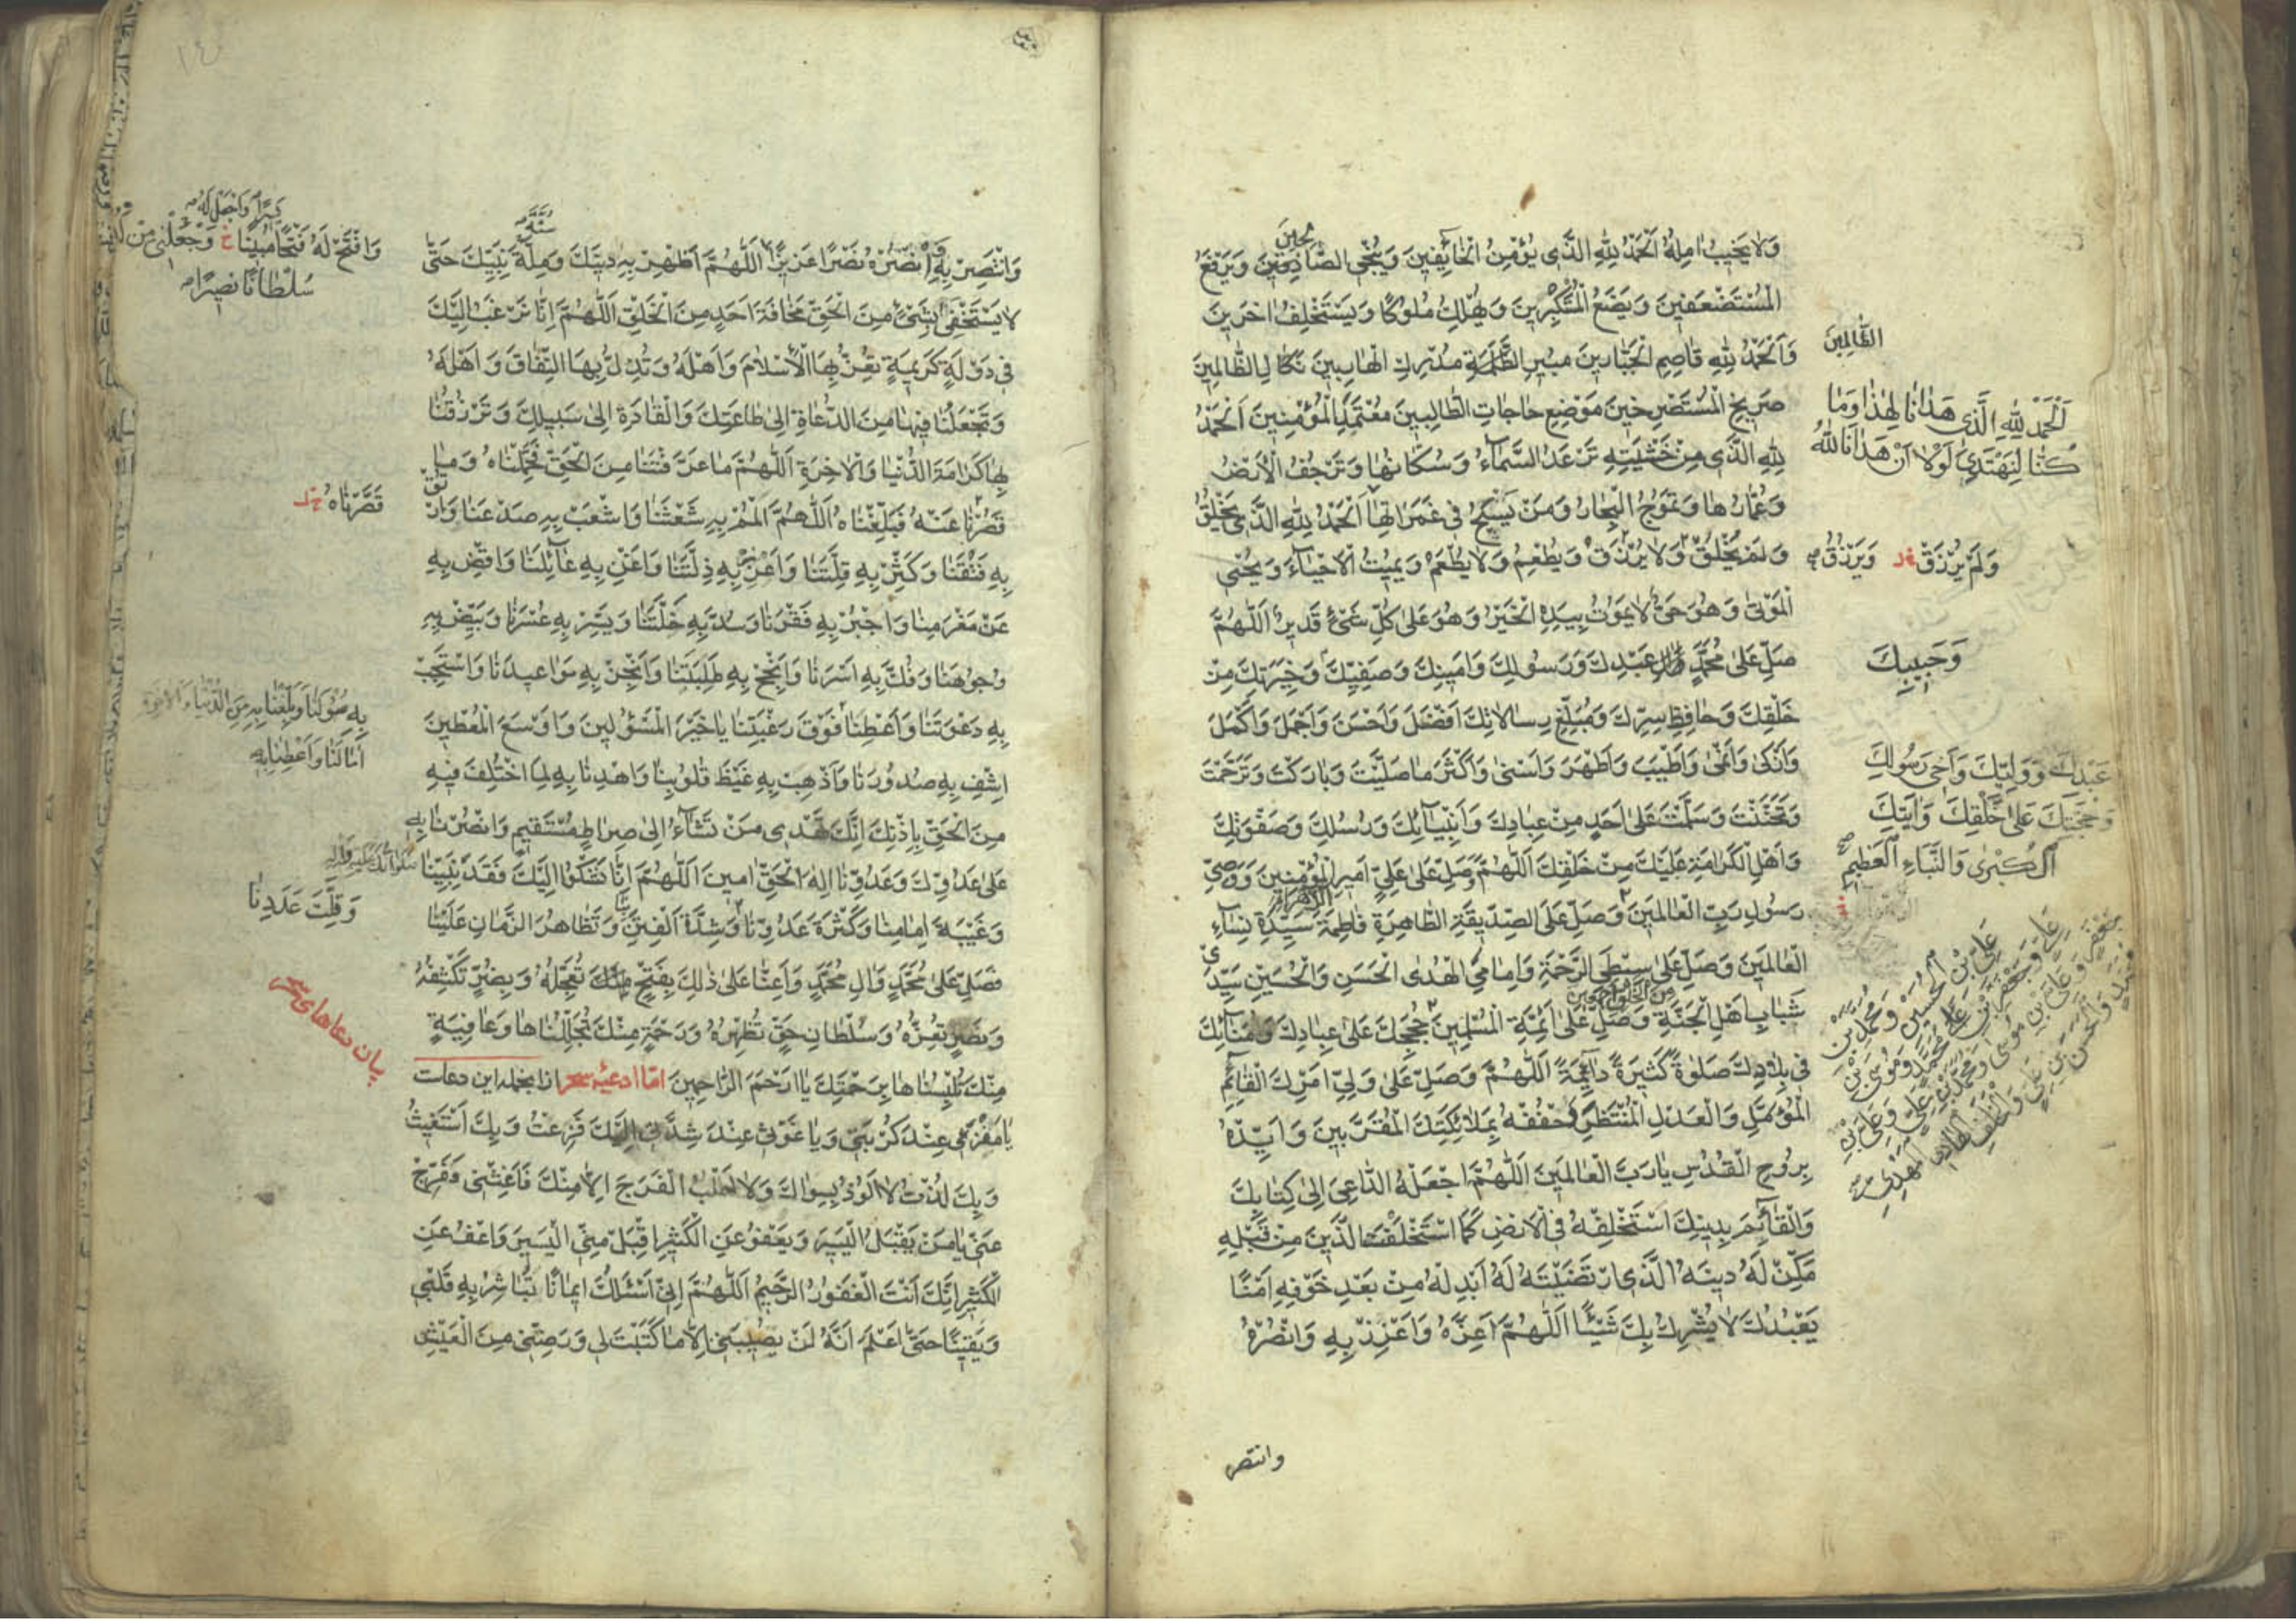 وَلا يَخيبُ امِلهُ اَلْحَمْدُ لِلّٰهِ الَّذی يُؤْمِنُ الْخائِفينَ وَيُنَجِّی الصّادِقينَ وَيَرْفَعُ
الْمُسْتَضْعَفينَ وَيَضَعُ الْمُتَكَبِّرينَ وَيُهْلِكُ مُلُوكًا وَيَسْتَخْلِفُ اخَرينَ
وَاَلْحَمْدُ لِلّٰهِ قاصِمِ الْجَبّارينَ مُبيرِ الظَّلَمَةِ مُدْرِكِ الْهارِبينَ نَكالِ الظّالِمينَ
صَريخِ الْمُسْتَصْرِخينَ مَوْضِعِ حاجاتِ الطّالِبينَ مُعْتَمَدِ الْمُؤْمِنينَ اَلْحَمْدُ
لِلّٰهِ الَّذی مِنْ خَشْيَتِهِ تَرْعَدُ السَّمآءُ وَسُكّانُها وَتَرْجُفُ الْاَرْضُ
وَعُمّارُها وَتَمُوجُ الْبِحارُ وَمَنْ يَسْبَحُ فی غَمَراتِها اَلْحَمْدُ لِلّٰهِ الَّذی يَخْلُقُ
وَلَمْ يُخْلَقْ وَلا يُرْزَقُ وَيُطْعِمُ وَلا يُطْعَمُ وَيُميتُ الْاَحْيآءَ وَيُحْيِی
الْمَوْتیٰ وَهُوَ حَیٌّ لا يَمُوتُ بِيَدِهِ الْخَيْرُ وَهُوَ عَلیٰ كُلِّ شَیْءٍ قَديرٌ اَللّٰهُمَّ
صَلِّ عَلیٰ مُحَمَّدٍ عَبْدِكَ وَرَسُولِكَ وَاَمينِكَ وَصَفِيِّكَ وَخِيَرَتِكَ مِنْ
خَلْقِكَ وَحافِظِ سِرِّكَ وَمُبَلِّغِ رِسالاتِكَ اَفْضَلَ وَاَحْسَنَ وَاَجْمَلَ وَاَكْمَلَ
وَاَزْكیٰ وَاَنْمیٰ وَاَطْيَبَ وَاَطْهَرَ وَاَسْنیٰ وَاَكْثَرَ ما صَلَّيْتَ وَبارَكْتَ وَتَرَحَّمْتَ
وَتَحَنَّنْتَ وَسَلَّمْتَ عَلیٰ اَحَدٍ مِنْ عِبادِكَ وَاَنْبِيآئِكَ وَرُسُلِكَ وَصَفْوَتِكَ
وَاَهْلِ الْكَرامَةِ عَلَيْكَ مِنْ خَلْقِكَ اَللّٰهُمَّ وَصَلِّ عَلیٰ عَلِیٍّ اَميرِ الْمُؤْمِنينَ وَوَصِیِّ
رَسُولِ رَبِّ الْعالَمينَ وَصَلِّ عَلَی الصِّدّيقَةِ الطّاهِرَةِ فاطِمَةَ سَيِّدَةِ نِسآءِ
الْعالَمينَ وَصَلِّ عَلیٰ سِبْطَیِ الرَّحْمَةِ وَاِمامَیِ الْهُدیٰ الْحَسَنِ وَالْحُسَيْنِ سَيِّدَیْ
شَبابِ اَهْلِ الْجَنَّةِ وَصَلِّ عَلیٰ اَئِمَّةِ الْمُسْلِمينَ حُجَجِكَ عَلیٰ عِبادِكَ وَاُمَنآئِكَ
فی بِلادِكَ صَلٰوةً كَثيرَةً دآئِمَةً اَللّٰهُمَّ وَصَلِّ عَلیٰ وَلِیِّ اَمْرِكَ الْقآئِمِ
الْمُؤَمَّلِ وَالْعَدْلِ الْمُنْتَظَرِ وَحُفَّهُ بِمَلائِكَتِكَ الْمُقَرَّبينَ وَاَيِّدْهُ
بِرُوحِ الْقُدُسِ يا رَبَّ الْعالَمينَ اَللّٰهُمَّ اجْعَلْهُ الدّاعِیَ اِلیٰ كِتابِكَ
وَالْقآئِمَ بِدينِكَ اسْتَخْلِفْهُ فی الْاَرْضِ كَمَا اسْتَخْلَفْتَ الَّذينَ مِنْ قَبْلِهِ
مَكِّنْ لَهُ دينَهُ الَّذی ارْتَضَيْتَهُ لَهُ اَبْدِلْهُ مِنْ بَعْدِ خَوْفِهِ اَمْنًا
يَعْبُدُكَ لا يُشْرِكُ بِكَ شَيْئًا اَللّٰهُمَّ اَعِزَّهُ وَاَعْزِزْ بِهِ وَانْصُرْهُ
وانتصر
الظّالِمينَ
اَلْحَمْدُ لِلّٰهِ الَّذی هَدانا لِهٰذا وَما
كُنّا لِنَهْتَدِیَ لَوْلا اَنْ هَدانَا اللّٰهُ
وَلَمْ يُرْزَقْ وَيَرْزُقُ
وَحَبيبِكَ
عَبْدِكَ وَوَلِيِّكَ وَاَخی رَسُولِكَ
وَحُجَّتِكَ عَلیٰ خَلْقِكَ وَايَتِكَ
الْكُبْریٰ وَالنَّبَاءِ الْعَظيمِ
عَلِیِّ بْنِ الْحُسَيْنِ وَمُحَمَّدِ بْنِ
عَلِیٍّ وَجَعْفَرِ بْنِ مُحَمَّدٍ وَمُوسَی بْنِ
جَعْفَرٍ وَعَلِیِّ بْنِ مُوسیٰ وَمُحَمَّدِ بْنِ عَلِیٍّ وَعَلِیِّ بْنِ
مُحَمَّدٍ وَالْحَسَنِ بْنِ عَلِیٍّ وَالْخَلَفِ الْهادِی الْمَهْدِیِّ
وَانْتَصِرْ بِهِ وَانْصُرْهُ نَصْرًا عَزيزًا اَللّٰهُمَّ اَظْهِرْ بِهِ دينَكَ وَمِلَّةَ نَبِيِّكَ حَتّیٰ
لا يَسْتَخْفِیَ بِشَیْءٍ مِنَ الْحَقِّ مَخافَةَ اَحَدٍ مِنَ الْخَلْقِ اَللّٰهُمَّ اِنّا نَرْغَبُ اِلَيْكَ
فی دَوْلَةٍ كَريمَةٍ تُعِزُّ بِهَا الْاِسْلامَ وَاَهْلَهُ وَتُذِلُّ بِهَا النِّفاقَ وَاَهْلَهُ
وَتَجْعَلُنا فيها مِنَ الدُّعاةِ اِلیٰ طاعَتِكَ وَالْقادَةِ اِلیٰ سَبيلِكَ وَتَرْزُقُنا
بِها كَرامَةَ الدُّنْيا وَالْاخِرَةِ اَللّٰهُمَّ ما عَرَّفْتَنا مِنَ الْحَقِّ فَحَمِّلْناهُ وَما
قَصُرْنا عَنْهُ فَبَلِّغْناهُ اَللّٰهُمَّ الْمُمْ بِهِ شَعَثَنا وَاشْعَبْ بِهِ صَدْعَنا وَارْتُقْ
بِهِ فَتْقَنا وَكَثِّرْ بِهِ قِلَّتَنا وَاَعْزِزْ بِهِ ذِلَّتَنا وَاَغْنِ بِهِ عآئِلَنا وَاقْضِ بِهِ
عَنْ مَغْرَمِنا وَاجْبُرْ بِهِ فَقْرَنا وَسُدَّ بِهِ خَلَّتَنا وَيَسِّرْ بِهِ عُسْرَنا وَبَيِّضْ بِهِ
وُجُوهَنا وَفُكَّ بِهِ اَسْرَنا وَاَنْجِحْ بِهِ طَلِبَتَنا وَاَنْجِزْ بِهِ مَواعيدَنا وَاسْتَجِبْ
بِهِ دَعْوَتَنا وَاَعْطِنا فَوْقَ رَغْبَتِنا يا خَيْرَ الْمَسْؤُلينَ وَاَوْسَعَ الْمُعْطينَ
اِشْفِ بِهِ صُدُورَنا وَاَذْهِبْ بِهِ غَيْظَ قُلُوبِنا وَاهْدِنا بِهِ لِمَا اخْتُلِفَ فيهِ
مِنَ الْحَقِّ بِاِذْنِكَ اِنَّكَ تَهْدی مَنْ تَشآءُ اِلیٰ صِراطٍ مُسْتَقيمٍ وَانْصُرْنا بِهِ
عَلیٰ عَدُوِّكَ وَعَدُوِّنا اِلٰهَ الْحَقِّ امينَ اَللّٰهُمَّ اِنّا نَشْكُوا اِلَيْكَ فَقْدَ نَبِيِّنا
وَغَيْبَةَ اِمامِنا وَكَثْرَةَ عَدُوِّنا وَشِدَّةَ الْفِتَنِ وَتَظاهُرَ الزَّمانِ عَلَيْنا
فَصَلِّ عَلیٰ مُحَمَّدٍ وَالِ مُحَمَّدٍ وَاَعِنّا عَلیٰ ذٰلِكَ بِفَتْحٍ مِنْكَ تُعَجِّلُهُ وَبِضُرٍّ تَكْشِفُهُ
وَنَصْرٍ تُعِزُّهُ وَسُلْطانِ حَقٍّ تُظْهِرُهُ وَرَحْمَةٍ مِنْكَ تُجَلِّلُناها وَعافِيَةٍ
مِنْكَ تُلْبِسُناها بِرَحْمَتِكَ يا اَرْحَمَ الرّاحِمينَ امّا ادعیهٔ سحر ازانجمله این دعاست
يا مَفْزَعی عِنْدَ كُرْبَتی وَيا غَوْثی عِنْدَ شِدَّتی اِلَيْكَ فَزِعْتُ وَبِكَ اسْتَغَثْتُ
وَبِكَ لُذْتُ لا اَلُوذُ بِسِواكَ وَلا اَطْلُبُ الْفَرَجَ اِلّا مِنْكَ فَاَغِثْنی وَفَرِّجْ
عَنّی يا مَنْ يَقْبَلُ الْيَسيرَ وَيَعْفُو عَنِ الْكَثيرِ اِقْبَلْ مِنِّی الْيَسيرَ وَاعْفُ عَنِّی
الْكَثيرَ اِنَّكَ اَنْتَ الْغَفُورُ الرَّحيمُ اَللّٰهُمَّ اِنّی اَسْئَلُكَ ايمانًا تُباشِرُ بِهِ قَلْبی
وَيَقينًا حَتّیٰ اَعْلَمَ اَنَّهُ لَنْ يُصيبَنی اِلّا ما كَتَبْتَ لی وَرَضِّنی مِنَ الْعَيْشِ
يَسيرًا وَاجْعَلْ لَهُ
وَافْتَحْ لَهُ فَتْحًا مُبينًا خ وَاجْعَلْ لی مِنْ لَدُنْكَ
سُلْطانًا نَصيرًا
قَصَّرْناهُ
بِهِ سُؤْلَنا وَبَلِّغْنا بِهِ مِنَ الدُّنْيا وَالْاخِرَةِ
امالَنا وَاَعْطِنا بِهِ
صَلَواتُكَ عَلَيْهِ وَالِهِ
وَقِلَّةَ عَدَدِنا
بیان دعاهای سحر